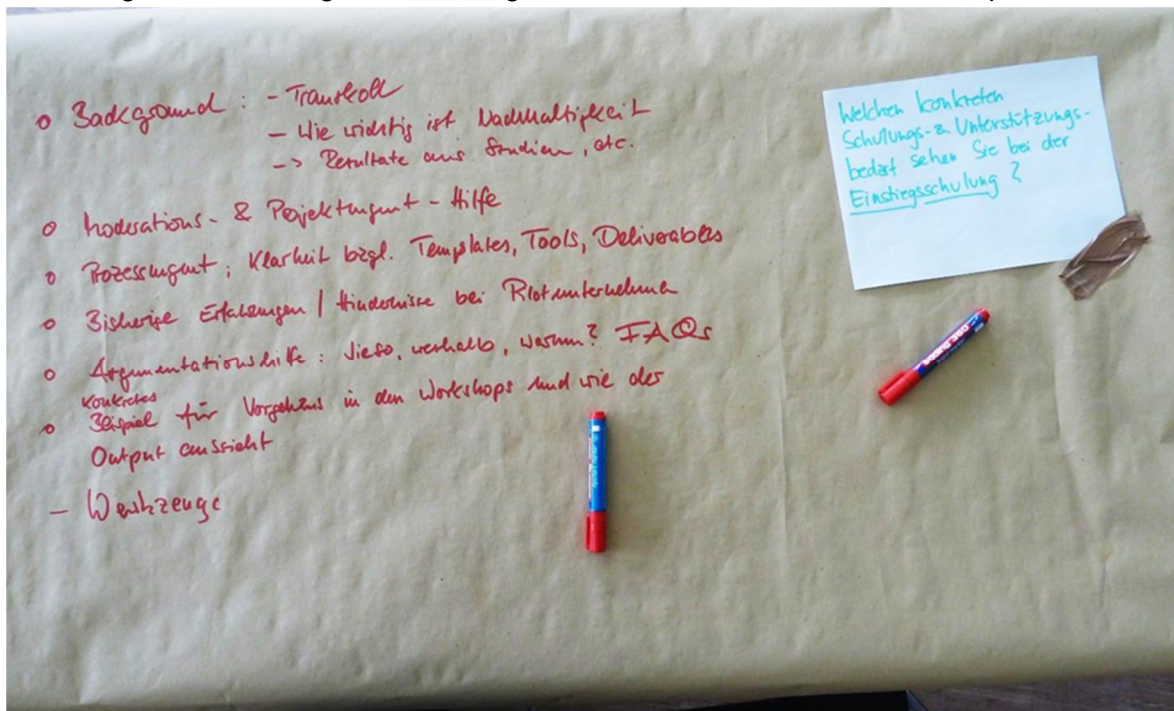 o Background : - Transkoll
- Wie wichtig ist Nachhaltigkeit
-> Resultate aus Studien, etc.
o Moderations- & Projektmgmt-Hilfe
o Prozessmgmt; Klarheit bzgl. Templates, Tools, Deliverables
o Bisherige Erfahrungen / Hindernisse bei Pilotunternehmen
o Argumentationshilfe : wieso, weshalb, warum? FAQs
Konkretes
o Beispiel für Vorgehens in den Workshops und wie der
Output aussieht
- Werkzeuge
Welchen konkreten
Schulungs- & Unterstützungs-
bedarf sehen Sie bei der
Einstiegsschulung?